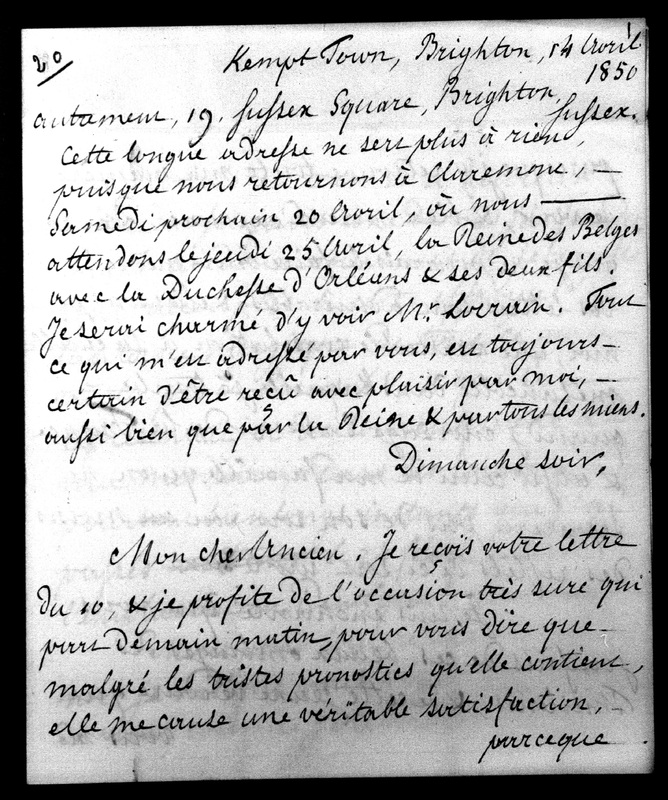 20
Kempt Town, Brighton, 14 Avril
1850
autament, 19. Sussex Square, Brighton,
Sussex.
Cette longue adresse ne sert plus à rien,
puisque nous retournons à Claremont, —
Samedi prochain 20 Avril, où nous ———
attendons le jeudi 25 Avril, la Reine des Belges
avec la Duchesse d'Orléans & ses deux fils.
Je serai charmé d'y voir Mr. Lorrain. Tout
ce qui m'est adressé par vous, est toujours —
certain d'être reçû avec plaisir par moi, —
aussi bien que par la Reine & par tous les miens.
Dimanche soir,
Mon cher Ancien. Je reçois votre lettre
du 10, & je profite de l'occasion très sure qui
part demain matin, pour vous dire que —
malgré les tristes pronostics qu'elle contient,
elle me cause une véritable satisfaction, —
parceque